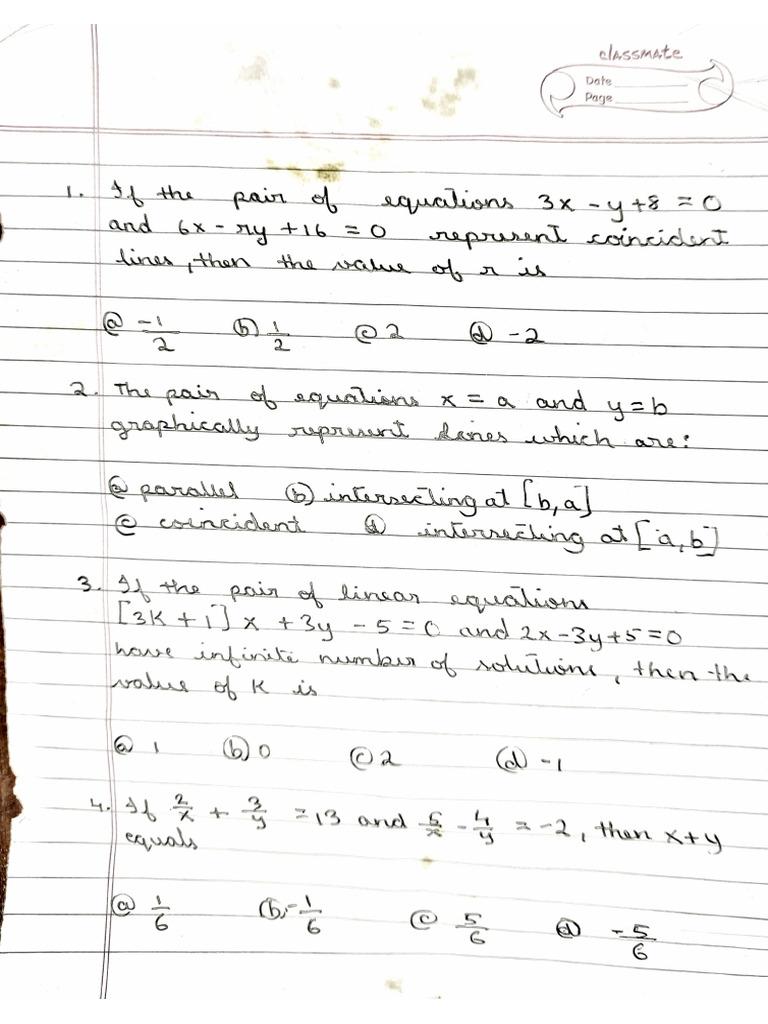 classmate
Date
Page
1. If the pair of equations 3x - y + 8 = 0
and 6x - ry + 16 = 0 represent coincident
lines, then the value of r is
(a) -1/2 (b) 1/2 (c) 2 (d) -2
2. The pair of equations x = a and y = b
graphically represent lines which are:
(a) parallel (b) intersecting at [b,a]
(c) coincident (d) intersecting at [a,b]
3. If the pair of linear equations
[3K + 1] x + 3y - 5 = 0 and 2x - 3y + 5 = 0
have infinite number of solutions, then the
value of K is
(a) 1 (b) 0 (c) 2 (d) -1
4. If 2/x + 3/y = 13 and 5/x - 4/y = -2, then x + y
equals
(a) 1/6 (b) -1/6 (c) 5/6 (d) -5/6